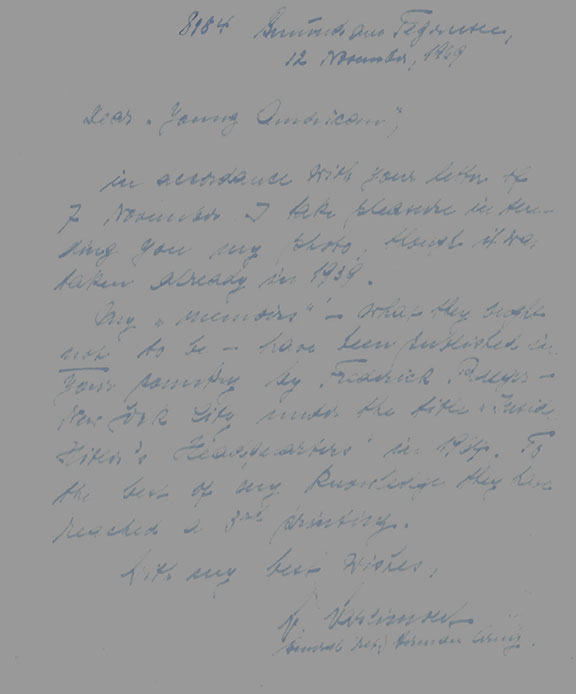 8184 Gmund am Tegernsee,
12 November, 1969
Dear „Young American",
in accordance with your letter of
7 November I take pleasure in sen-
ding you my photo, though it was
taken already in 1939.
My „memoirs" – what they ought
not to be – have been published in
your country by Fredrick Praeger –
New York City under the title „Inside
Hitler's Headquarters" in 1964. To
the best of my knowledge they have
reached a 3rd printing.
With my best wishes,
W. Warlimont
General (ret.) German Army.